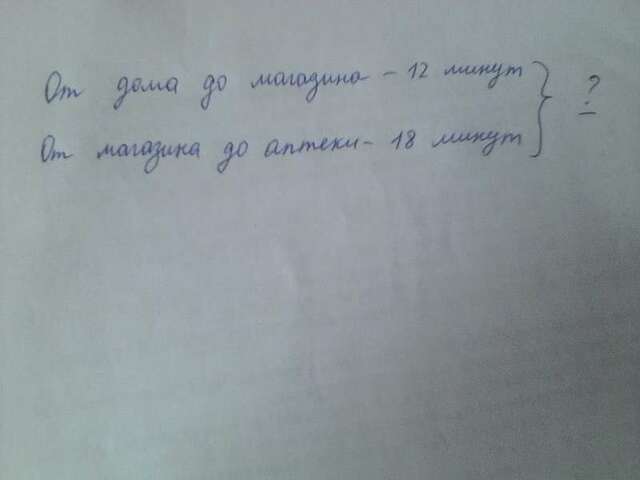 От дома до магазина - 12 минут
От магазина до аптеки - 18 минут
?